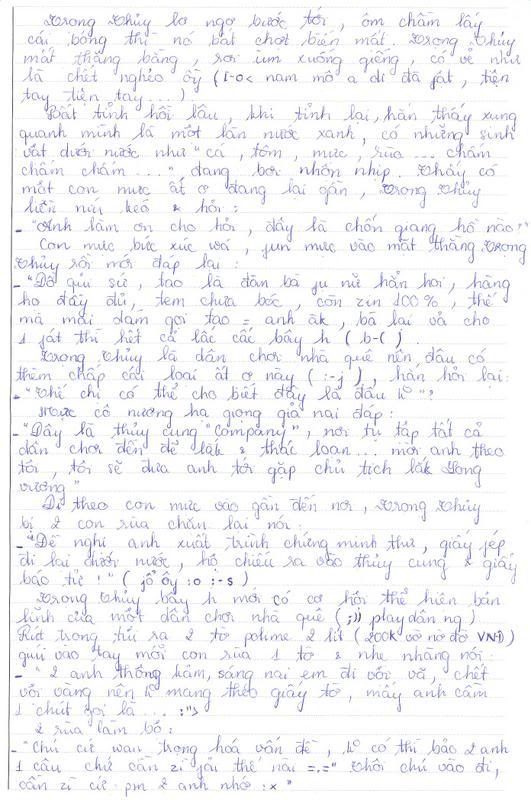 Trọng Thủy lơ ngơ bước tới, ôm chầm lấy
cái bóng thì nó bất chợt biến mất. Trọng Thủy
mất thăng bằng, rơi ùm xuống giếng, có vẻ như
là chết nghẻo òỳ (1-0< nam mô a di đà fật, tiện
tay tiện tay ...)
Bất tỉnh hồi lâu, khi tỉnh lại, hắn thấy xung
quanh mình là một làn nước xanh, có những sinh
vật dưới nước như "cá, tôm, mực, rùa ... chấm
chấm chấm ...", đang bơi nhộn nhịp. Thấy có
một con mực ất ơ đang lại gần, Trọng Thủy
liền níu kéo & hỏi:
- "Anh làm ơn cho hỏi, đây là chốn giang hồ nào?"
Con mực bức xúc wá, fun mực vào mặt thằng Trọng
Thủy rồi mới đáp lại:
- "Đồ quỉ sứ, tao là đàn bà fụ nữ hẳn hoi, hàng
họ đầy đủ, tem chưa bóc, còn zin 100%, thế
mà mài dám gọi tao = anh ák, bà lại vả cho
1 fát thì hết cả lấc cấc bây h (b-( ).
Trọng Thủy là dân chơi nhà quê nên đâu có
thèm chấp cái loại ất ơ này ( :-j ), hắn hỏi lại:
- "Thế chị có thể cho biết đây là đâu k°"?
Mực cô nương hạ giọng giả nai đáp:
- "Đây là thủy cung "Company", nơi tụ tập tất cả
dân chơi đến để lắk & thác loạn... mời anh theo
tôi, tôi sẽ đưa anh tới gặp chủ tịch lắk Long
vương"
Đi theo con mực vào gần đến nơi, Trọng Thủy
bị 2 con rùa chặn lại nói:
- "Đề nghị anh xuất trình chứng minh thư, giấy fép
đi lại dưới nước, hộ chiếu ra vào thủy cung & giấy
báo tử !" ( :o :-s )
Trọng Thủy bây h mới có cơ hội thể hiện bản
lĩnh của một dân chơi nhà quê ( ;)) playdân ng)
Rút trong túi ra 2 tờ polime 2 lít (200k VNĐ)
gửi vào tay mỗi con rùa 1 tờ & nhẹ nhàng nói:
- "2 anh thông kảm, sáng nai em đi vội vã, chết
vội vàng nên k° mang theo giấy tờ, mấy anh cầm
1 chút gọi là ... :">
2 rùa làm bộ:
- "Chú cứ wan trọng hoá vấn đề, k° có thì bảo 2 anh
1 câu chứ cần zì fải thế nài =.=" Thôi chú vào đi,
cần zì cứ pm 2 anh nhớ :x "